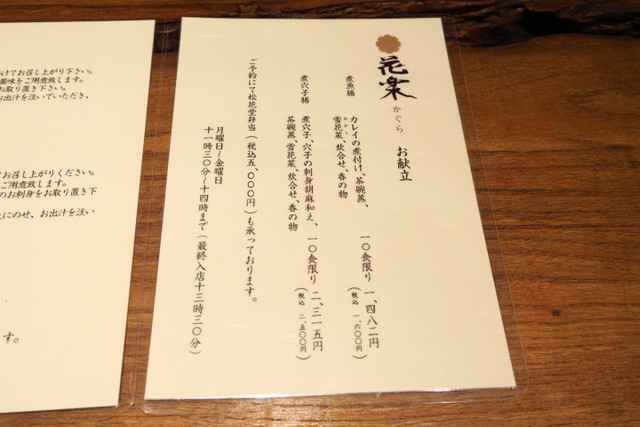 花楽
かぐら
お献立
煮魚膳
カレイの煮付け、茶碗蒸、
おから
雪花菜、炊合せ、香の物
一〇食限り
一、四八二円
(税込 一、六〇〇円)
煮穴子膳
煮穴子、穴子の刺身胡麻和え、
茶碗蒸、雪花菜、炊合せ、香の物
一〇食限り
二、三一五円
(税込 二、五〇〇円)
ご予約にて松花堂弁当(税込五、〇〇〇円)も承っております。
月曜日〜金曜日
十一時三〇分〜十四時まで(最終入店十三時三〇分)
けてお召し上がり下さい。
薬味をご用意致します。
お取り置き下さい。
お出汁を注いでいただき、
お召し上がりください。
ご用意致します。
のお刺身をお取り置き下
にのせ、お出汁を注い
す。